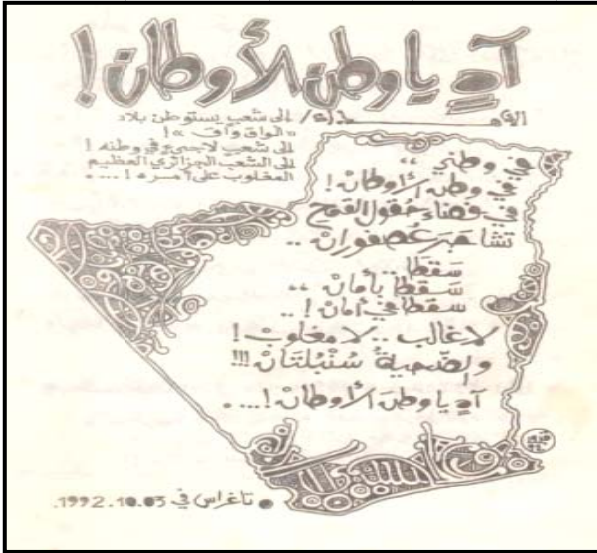 آهٍ يا وطن الأوطان!
إلى شعب يستوطن بلاد
«الواق واق»!
إلى شعب لاجىء في وطنه!
إلى الشعب الجزائري العظيم
المغلوب على أمره!....
في وطني ،،
في وطن الأوطان!
في فضاء حُقول القمح
تشاجَرَ عُصفورانْ..
سَقَطا..
سَقَطا بأمانْ ،،
سَقَطا في أمان!..
لا غالب.. لا مغلوبْ!
والضّحيةُ سُنْبُلتَانْ!!!
آهٍ يا وطنَ الأوطانْ!....
تاغراس في 1992.10.03.